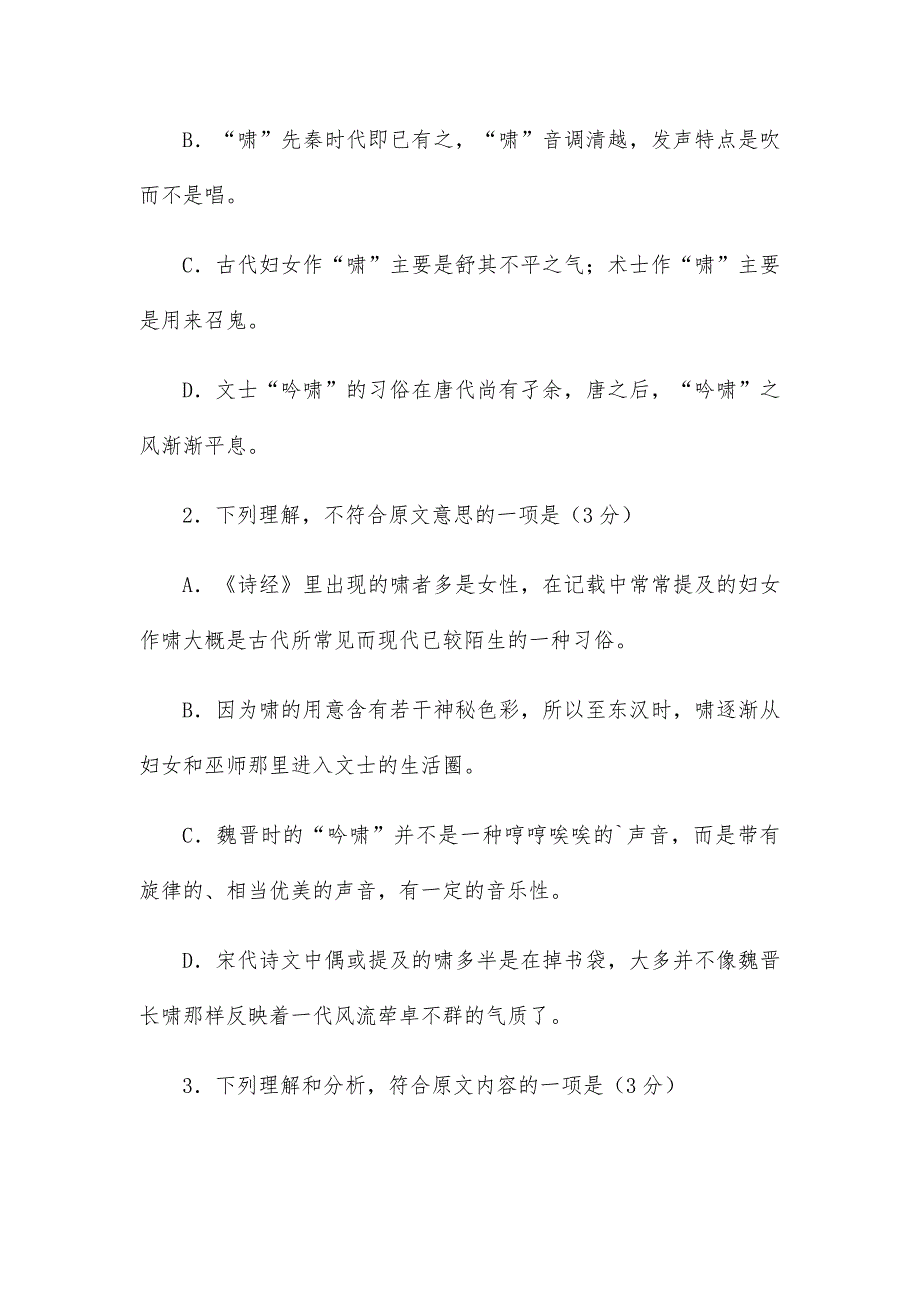 B．“啸”先秦时代即已有之，“啸”音调清越，发声特点是吹
而不是唱。
C．古代妇女作“啸”主要是舒其不平之气；术士作“啸”主要
是用来召鬼。
D．文士“吟啸”的习俗在唐代尚有孑余，唐之后，“吟啸”之
风渐渐平息。
2．下列理解，不符合原文意思的一项是（3分）
A．《诗经》里出现的啸者多是女性，在记载中常常提及的妇女
作啸大概是古代所常见而现代已较陌生的一种习俗。
B．因为啸的用意含有若干神秘色彩，所以至东汉时，啸逐渐从
妇女和巫师那里进入文士的生活圈。
C．魏晋时的“吟啸”并不是一种哼哼唉唉的`声音，而是带有
旋律的、相当优美的声音，有一定的音乐性。
D．宋代诗文中偶或提及的啸多半是在掉书袋，大多并不像魏晋
长啸那样反映着一代风流荦卓不群的气质了。
3．下列理解和分析，符合原文内容的一项是（3分）